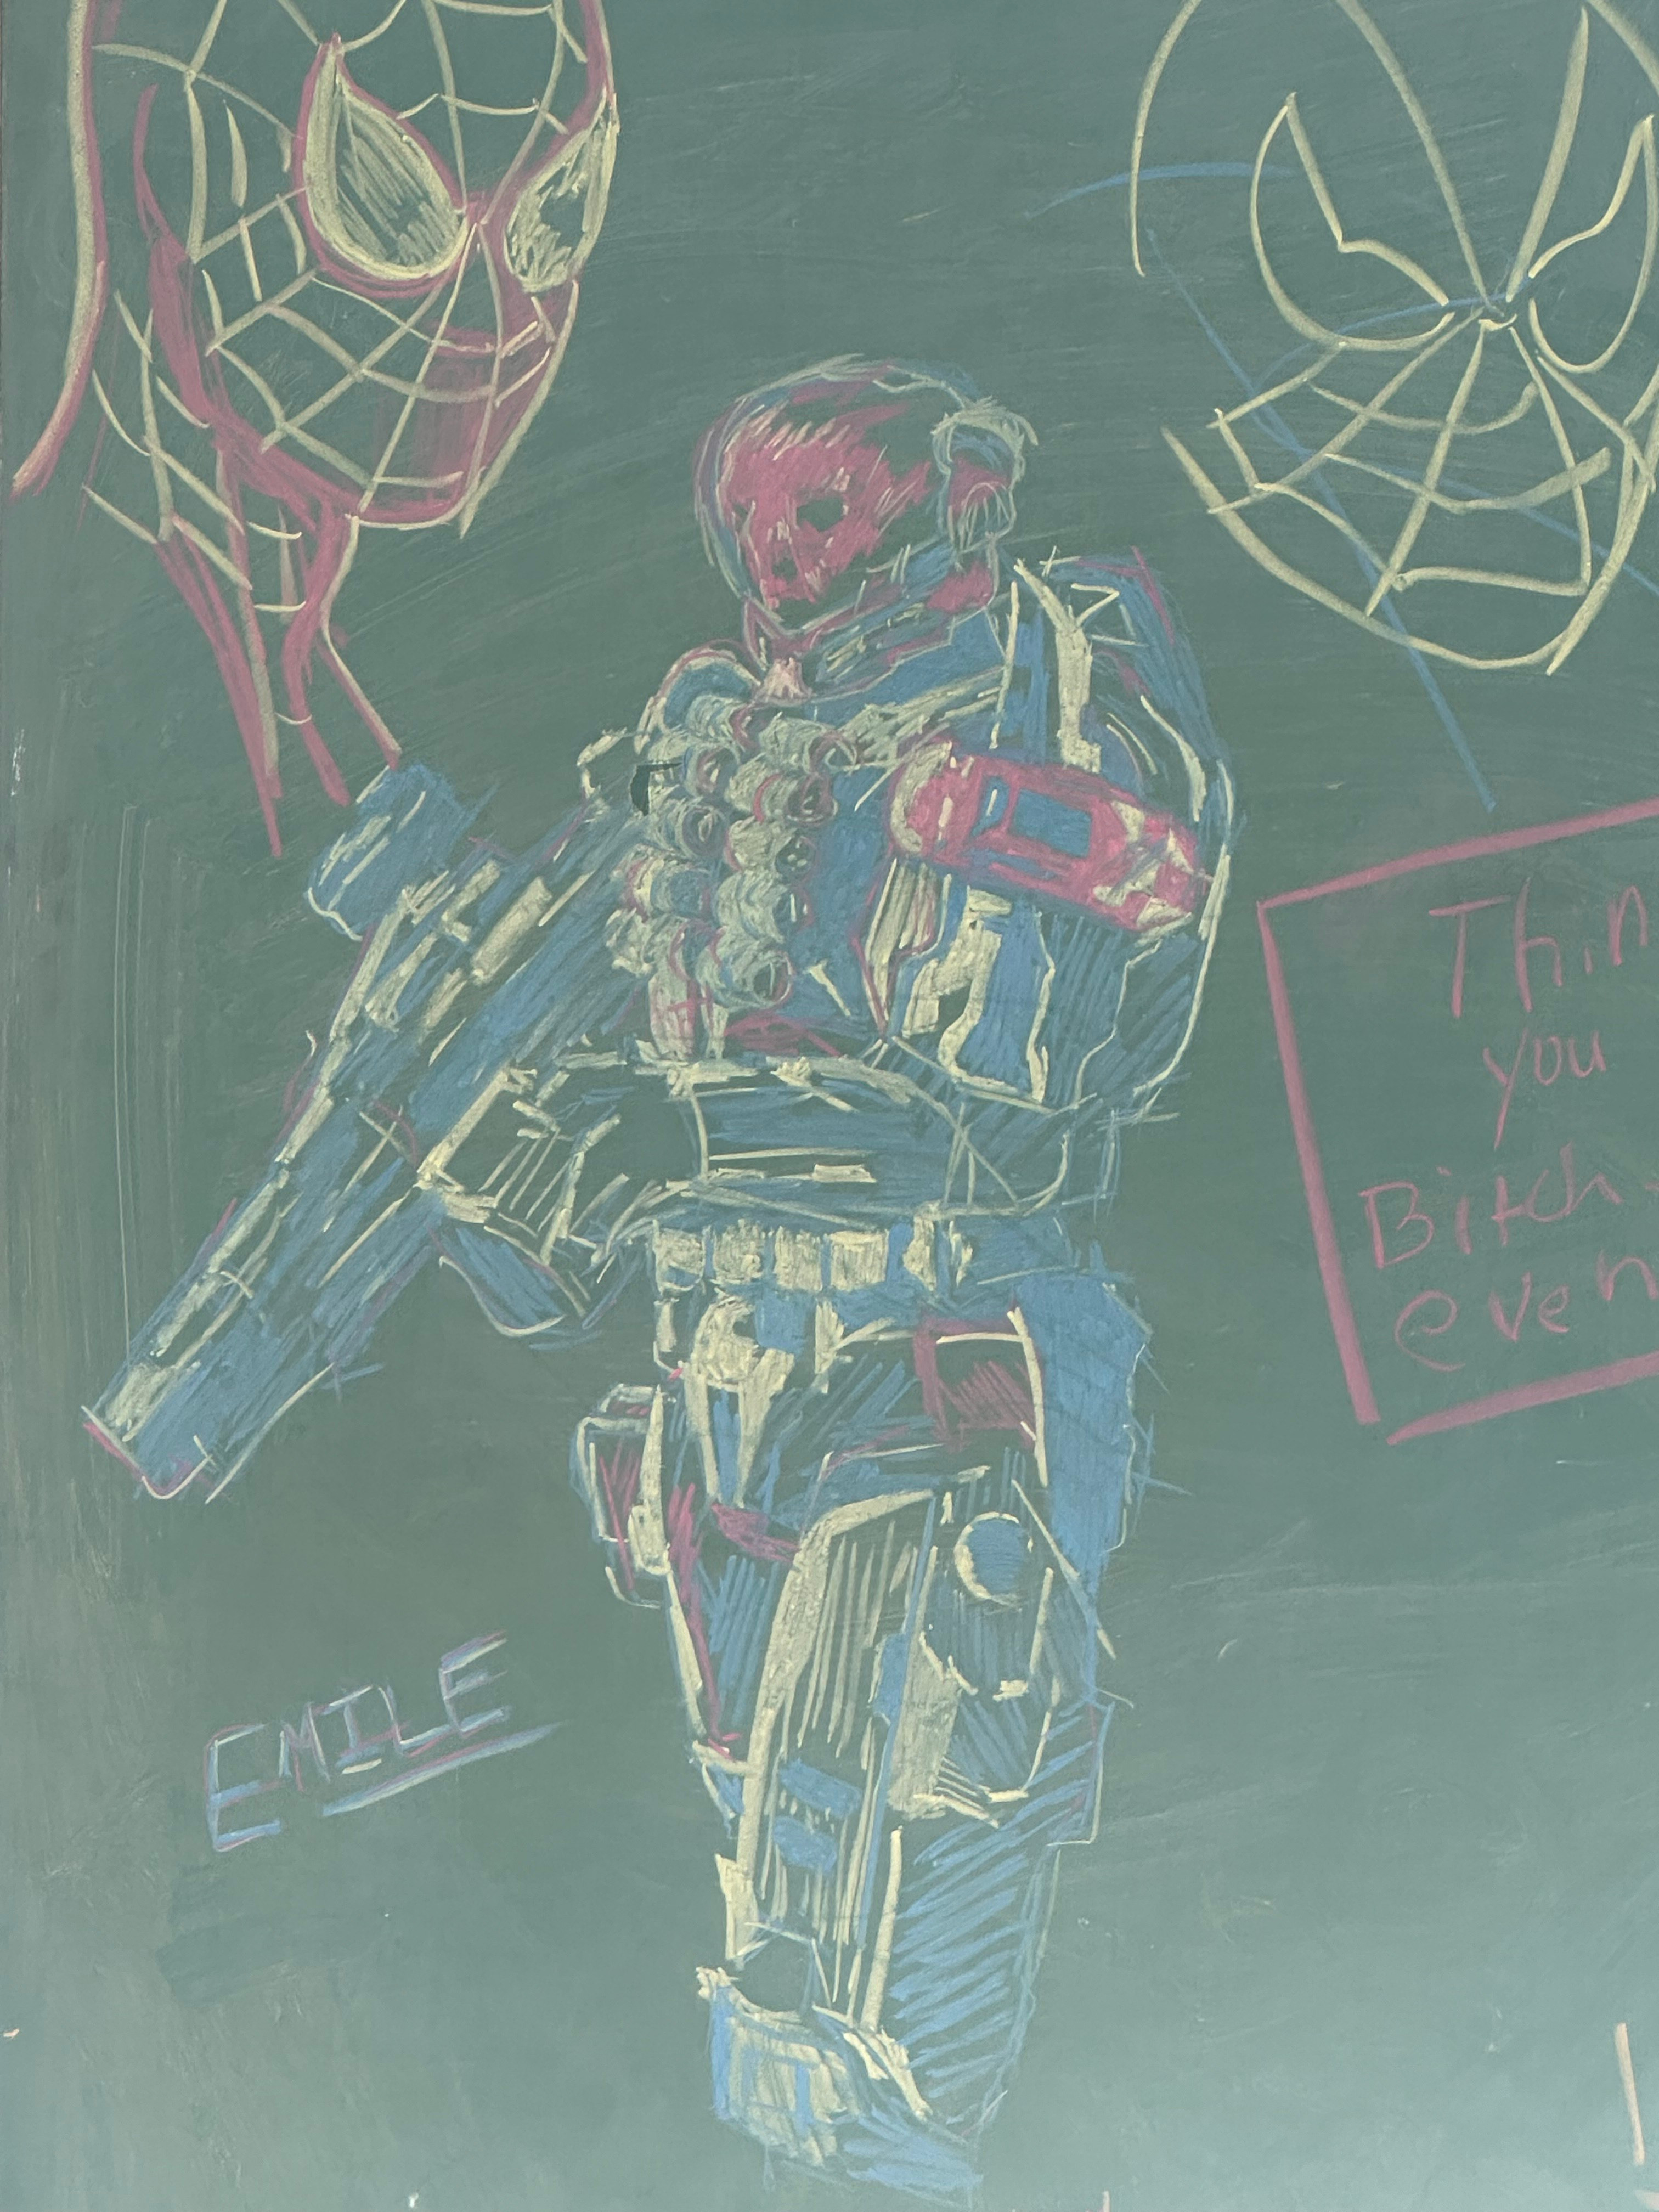 Thin
you
Bitch-
even
EMILE